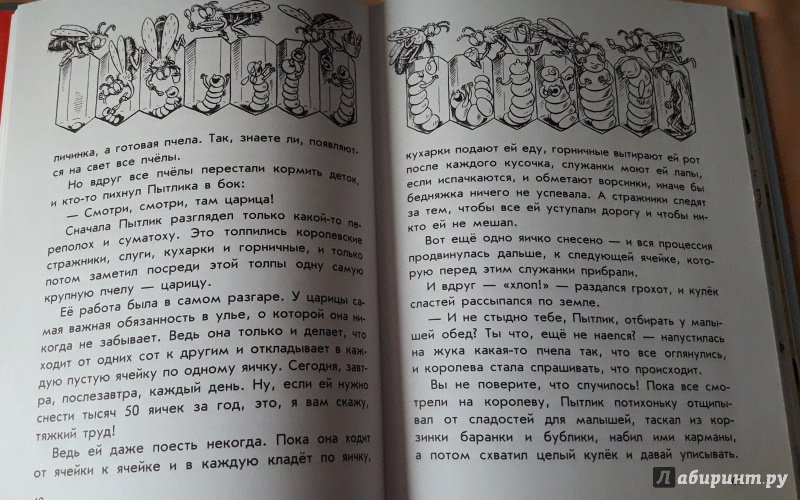 личинка, а готовая пчела. Так, знаете ли, появляют-
ся на свет все пчёлы.
Но вдруг все пчёлы перестали кормить деток,
и кто-то пихнул Пытлика в бок:
— Смотри, смотри, там царица!
Сначала Пытлик разглядел только какой-то пе-
реполох и суматоху. Это толпились королевские
стражники, слуги, кухарки и горничные, и только
потом заметил посреди этой толпы одну самую
крупную пчелу — царицу.
Её работа была в самом разгаре. У царицы са-
мая важная обязанность в улье, о которой она ни-
когда не забывает. Ведь она только и делает, что
ходит от одних сот к другим и откладывает в каж-
дую пустую ячейку по одному яичку. Сегодня, завт-
ра, послезавтра, каждый день. Ну, если ей нужно
снести тысяч 50 яичек за год, это, я вам скажу,
тяжкий труд!
Ведь ей даже поесть некогда. Пока она ходит
от ячейки к ячейке и в каждую кладёт по яичку,
кухарки подают ей еду, горничные вытирают ей рот
после каждого кусочка, служанки моют ей лапы,
если испачкаются, и обметают ворсинки, иначе бы
бедняжка ничего не успевала. А стражники следят
за тем, чтобы все ей уступали дорогу и чтобы ни-
кто ей не мешал.
Вот ещё одно яичко снесено — и вся процессия
продвинулась дальше, к следующей ячейке, кото-
рую перед этим служанки прибрали.
И вдруг — «хлоп!» — раздался грохот, и кулёк
сластей рассыпался по земле.
— И не стыдно тебе, Пытлик, отбирать у малы-
шей обед? Ты что, ещё не наелся? — напустилась
на жука какая-то пчела так, что все оглянулись,
и королева стала спрашивать, что происходит.
Вы не поверите, что случилось! Пока все смо-
трели на королеву, Пытлик потихоньку отщипы-
вал от сладостей для малышей, таскал из кор-
зинки баранки и бублики, набил ими карманы,
а потом схватил целый кулёк и давай уписывать.
Лабиринт.ру